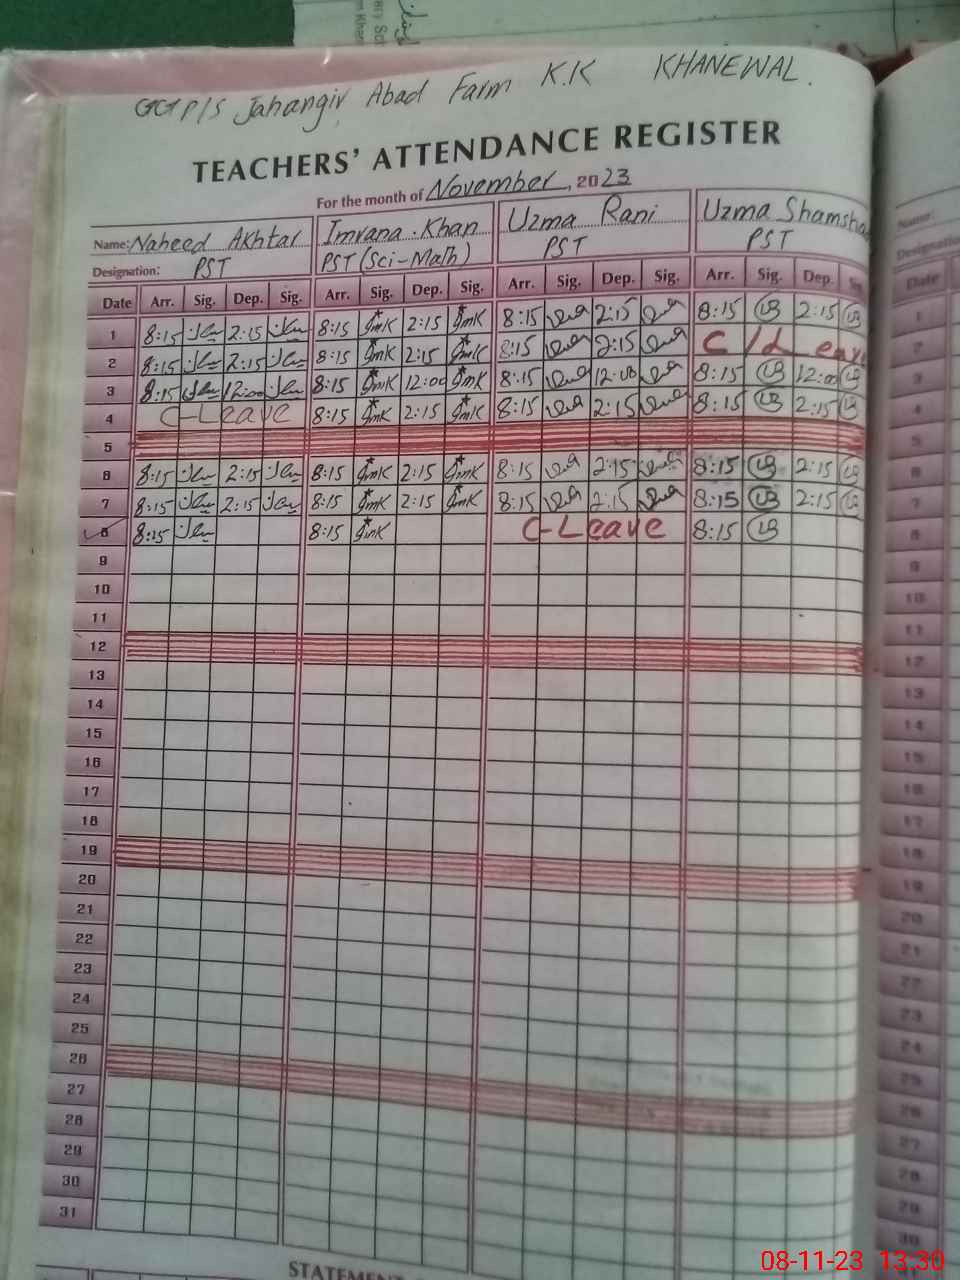 GGP/S Jahangir Abad Farm K.K KHANEWAL.
TEACHERS' ATTENDANCE REGISTER
For the month of November, 2023
Name: Naheed Akhtar Imrana. Khan Uzma Rani Uzma Shamsha
Designation: PST PST (Sci-Math) PST PST
Date Arr. Sig. Dep. Sig. Arr. Sig. Dep. Sig. Arr. Sig. Dep. Sig. Arr. Sig. Dep.
1 8:15 2:15 8:15 ImK 2:15 ImK 8:15 2:15 8:15 2:15
2 8:15 2:15 8:15 ImK 2:15 ImK 8:15 2:15 C/Leave
3 8:15 12:00 8:15 ImK 12:00 ImK 8:15 12:00 8:15 12:00
4 C-Leave 8:15 ImK 2:15 ImK 8:15 2:15 8:15 2:15
5
6 8:15 2:15 8:15 ImK 2:15 ImK 8:15 2:15 8:15 2:15
7 8:15 2:15 8:15 ImK 2:15 ImK 8:15 2:15 8:15 2:15
8 8:15 8:15 ImK C-Leave 8:15
9
10
11
12
13
14
15
16
17
18
19
20
21
22
23
24
25
26
27
28
29
30
31
STATEMENT
08-11-23 13:30